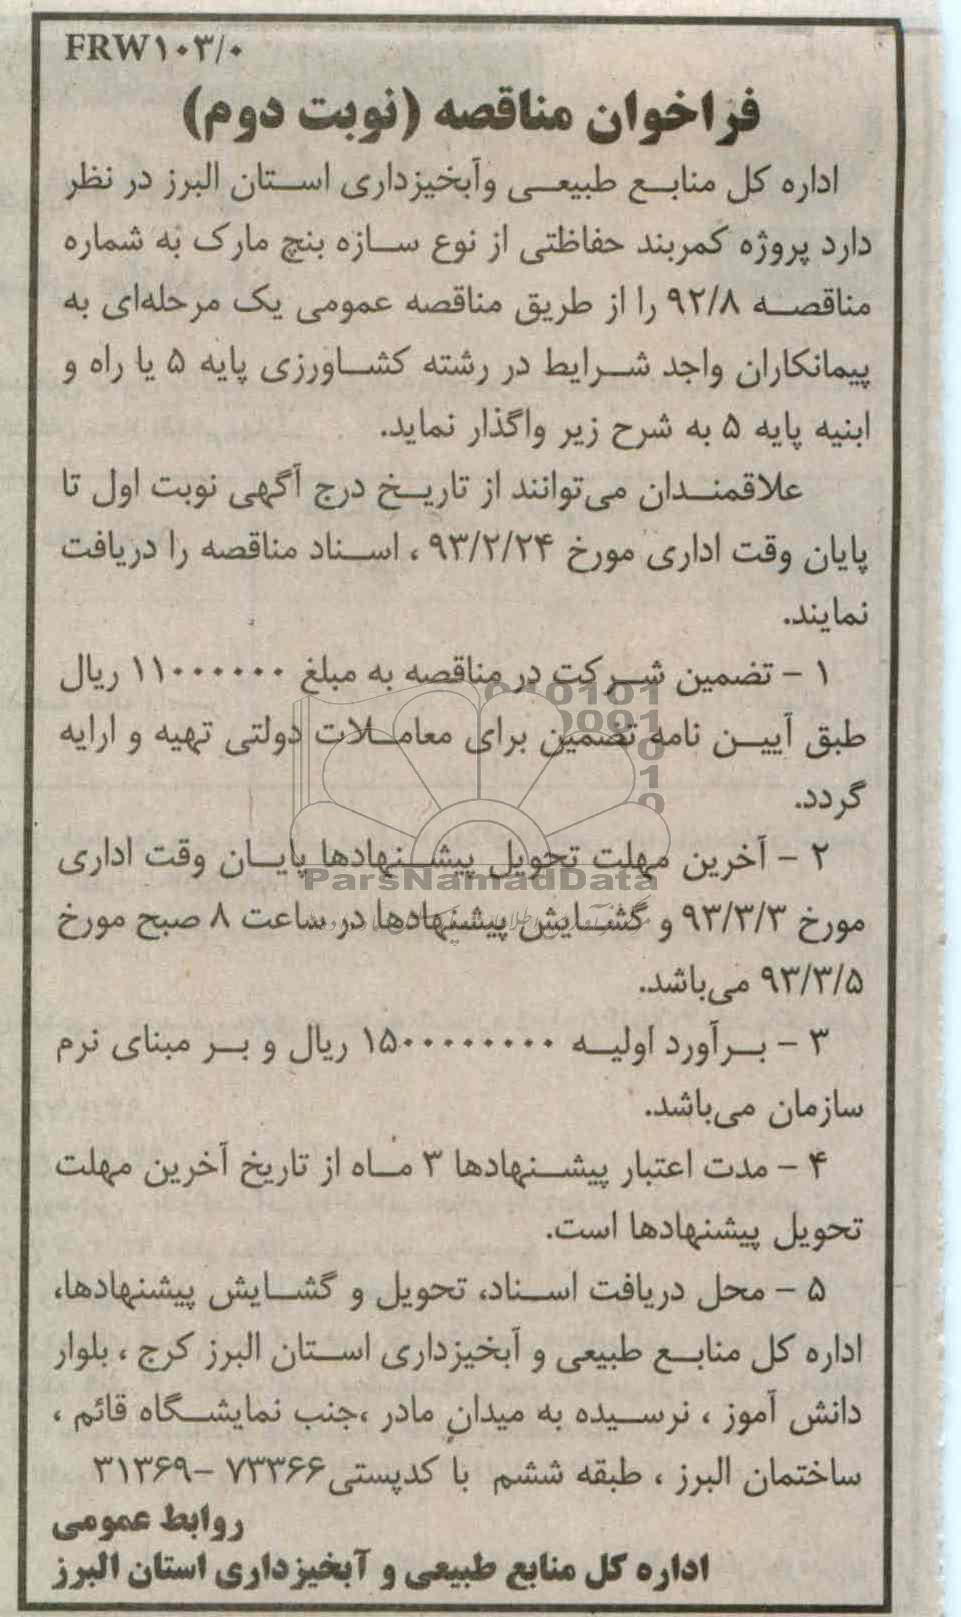 FRW۱۰۳/۰
فراخوان مناقصه (نوبت دوم)
اداره کل منابع طبیعی وآبخیزداری استان البرز در نظر
دارد پروژه کمربند حفاظتی از نوع سازه بنچ مارک به شماره
مناقصه ۹۲/۸ را از طریق مناقصه عمومی یک مرحله‌ای به
پیمانکاران واجد شرایط در رشته کشاورزی پایه ۵ یا راه و
ابنیه پایه ۵ به شرح زیر واگذار نماید.
علاقمندان می‌توانند از تاریخ درج آگهی نوبت اول تا
پایان وقت اداری مورخ ۹۳/۲/۲۴ ، اسناد مناقصه را دریافت
نمایند.
۱ - تضمین شرکت در مناقصه به مبلغ ۱۱۰۰۰۰۰۰ ریال
طبق آیین نامه تضمین برای معاملات دولتی تهیه و ارایه
گردد.
۲ - آخرین مهلت تحویل پیشنهادها پایان وقت اداری
ParsNamadData
مورخ ۹۳/۳/۳ و گشایش پیشنهادها در ساعت ۸ صبح مورخ
۹۳/۳/۵ می‌باشد.
۳ - برآورد اولیه ۱۵۰۰۰۰۰۰۰۰۰ ریال و بر مبنای نرم
سازمان می‌باشد.
۴ - مدت اعتبار پیشنهادها ۳ ماه از تاریخ آخرین مهلت
تحویل پیشنهادها است.
۵ - محل دریافت اسناد، تحویل و گشایش پیشنهادها،
اداره کل منابع طبیعی و آبخیزداری استان البرز کرج ، بلوار
دانش آموز ، نرسیده به میدان مادر ،جنب نمایشگاه قائم ،
ساختمان البرز ، طبقه ششم با کدپستی۷۳۳۶۶ -۳۱۳۶۹
روابط عمومی
اداره کل منابع طبیعی و آبخیزداری استان البرز